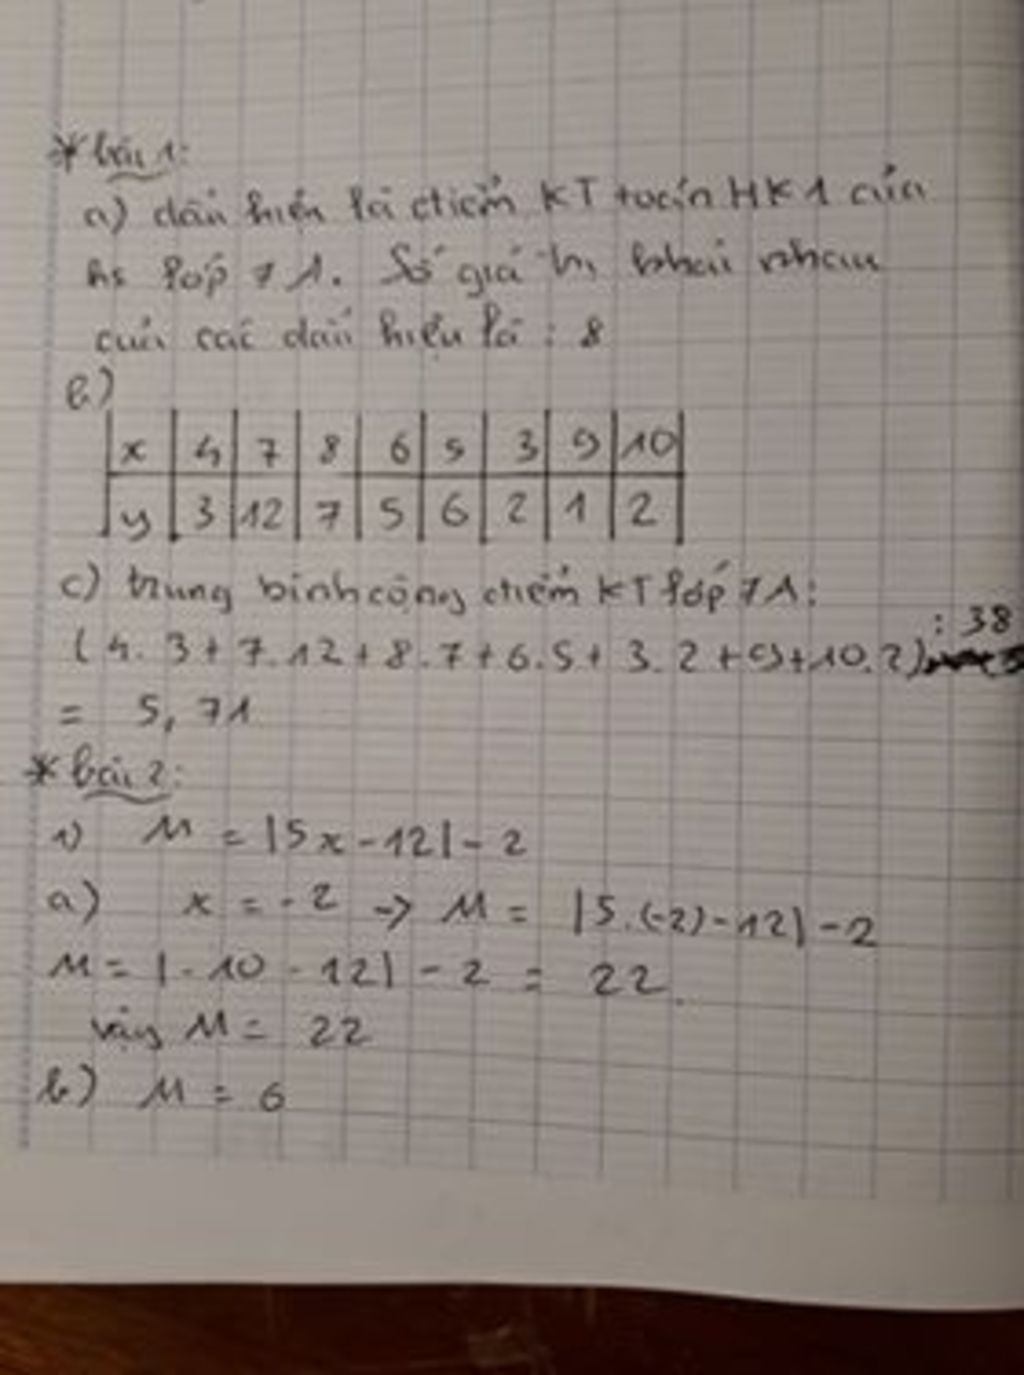 * bài 1:
a) dấu hiệu là điểm KT toán HK1 của
hs lớp 7A. Số giá trị khác nhau
của các dấu hiệu là : 8
b)
x 4 7 8 6 5 3 9 10
y 3 12 7 5 6 2 1 2
c) trung bình cộng điểm KT lớp 7A:
(4. 3 + 7.12 + 8.7 + 6.5 + 3.2 + 9 + 10.2) : 38
= 5,71
* bài 2:
1) M = |5x - 12| - 2
a) x = -2 -> M = |5.(-2) - 12| - 2
M = |-10 - 12| - 2 = 22.
vậy M = 22
b) M = 6